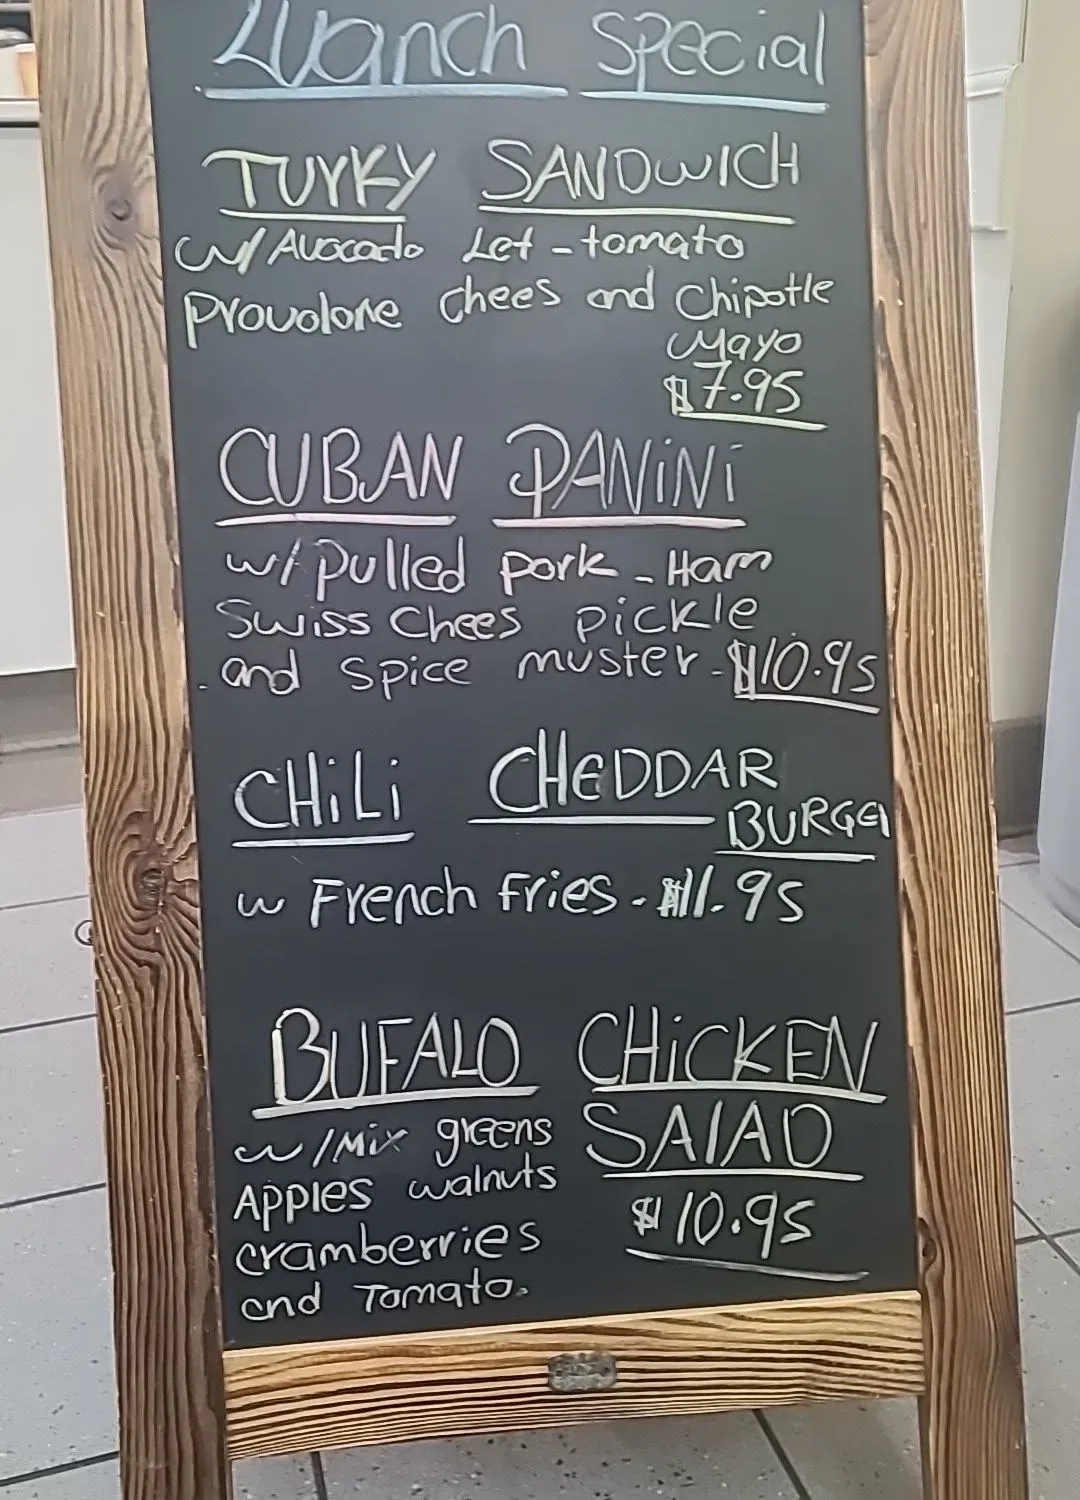 Luanch Special
TURKY SANDWICH
w/ Avocado Let - tomato
Provolone chees and Chipotle
Mayo
$7.95
CUBAN PANiNi
w/ Pulled pork - Ham
Swiss Chees pickle
and spice muster - $10.95
CHiLi CHEDDAR
BURGER
w French Fries - $11.95
BUFALO CHiCKEN
SAlAD
w/ Mix greens
Apples walnuts
cramberries
and Tomato.
$10.95